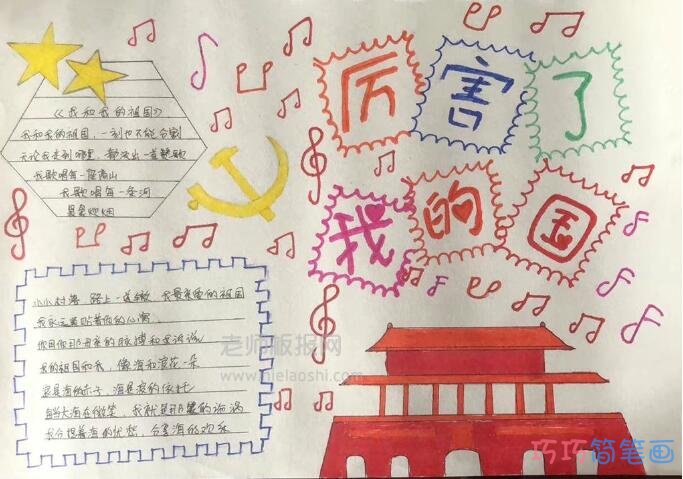 厉害了
我的国
《我和我的祖国》
我和我的祖国，一刻也不能分割
无论我走到哪里，都流出一首赞歌
我歌唱每一座高山
我歌唱每一条河
袅袅炊烟
小小村落 路上一道辙 我最亲爱的祖国
我永远紧贴着你的心窝
你用你那母亲的脉搏和我诉说
我的祖国和我，像海和浪花一朵
浪是海的赤子，海是浪的依托
每当大海在微笑，我就是那笑的涡漩
我分担着海的忧愁，分享海的欢乐
老师板报网
www.hielaoshi.com
巧巧简笔画